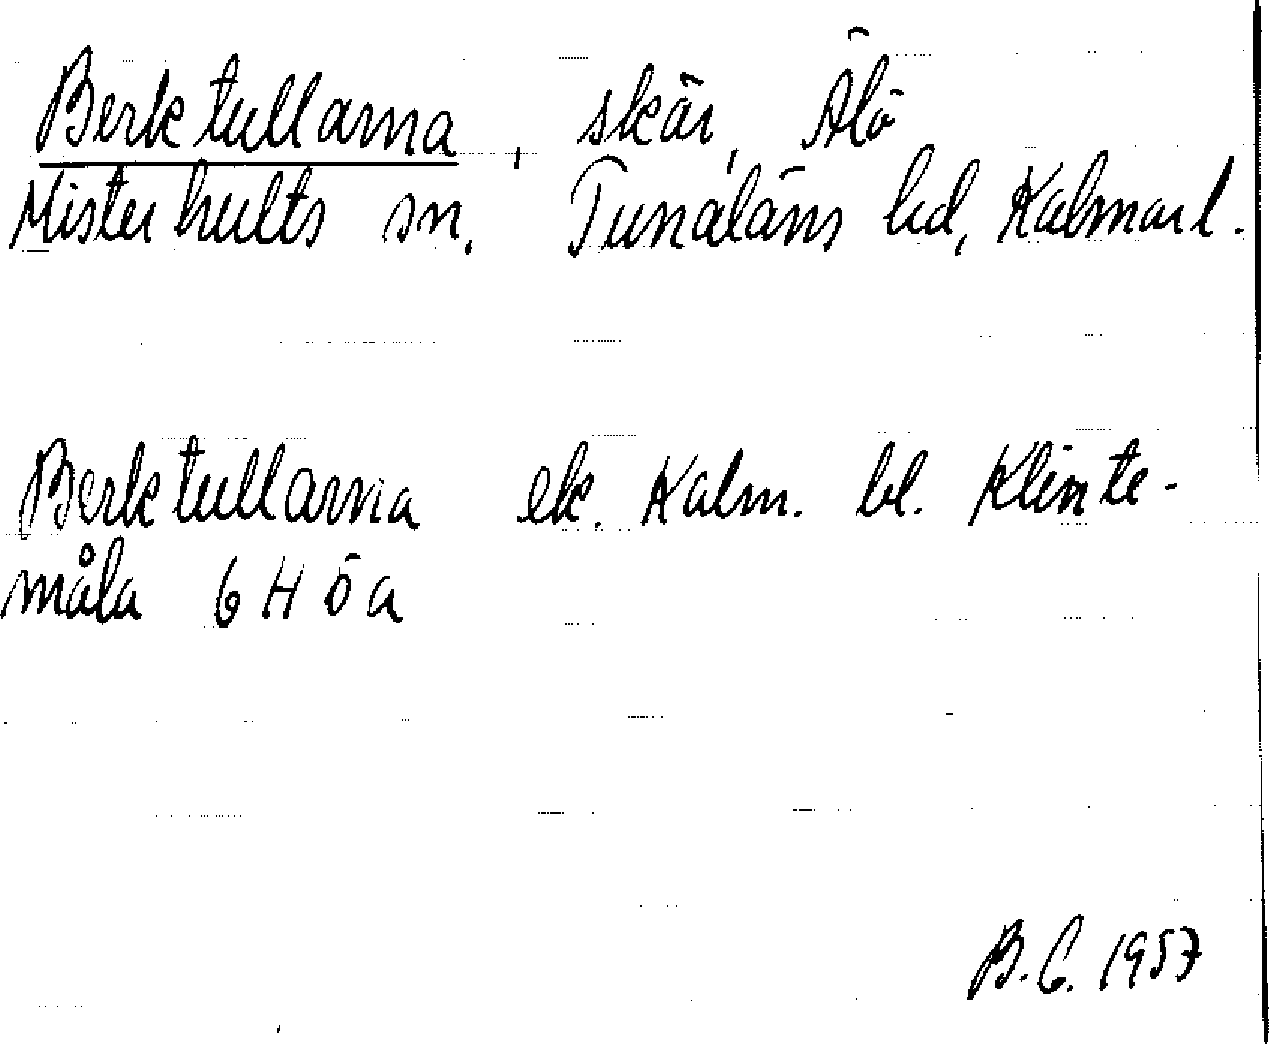 Berktullarna, skär, Älö
Misterhults sn, Tunaläns hd, Kalmar l.
Berktullarna ek. Kalm. bl. Klinte-
måla 6 H ö a
B.C. 1957